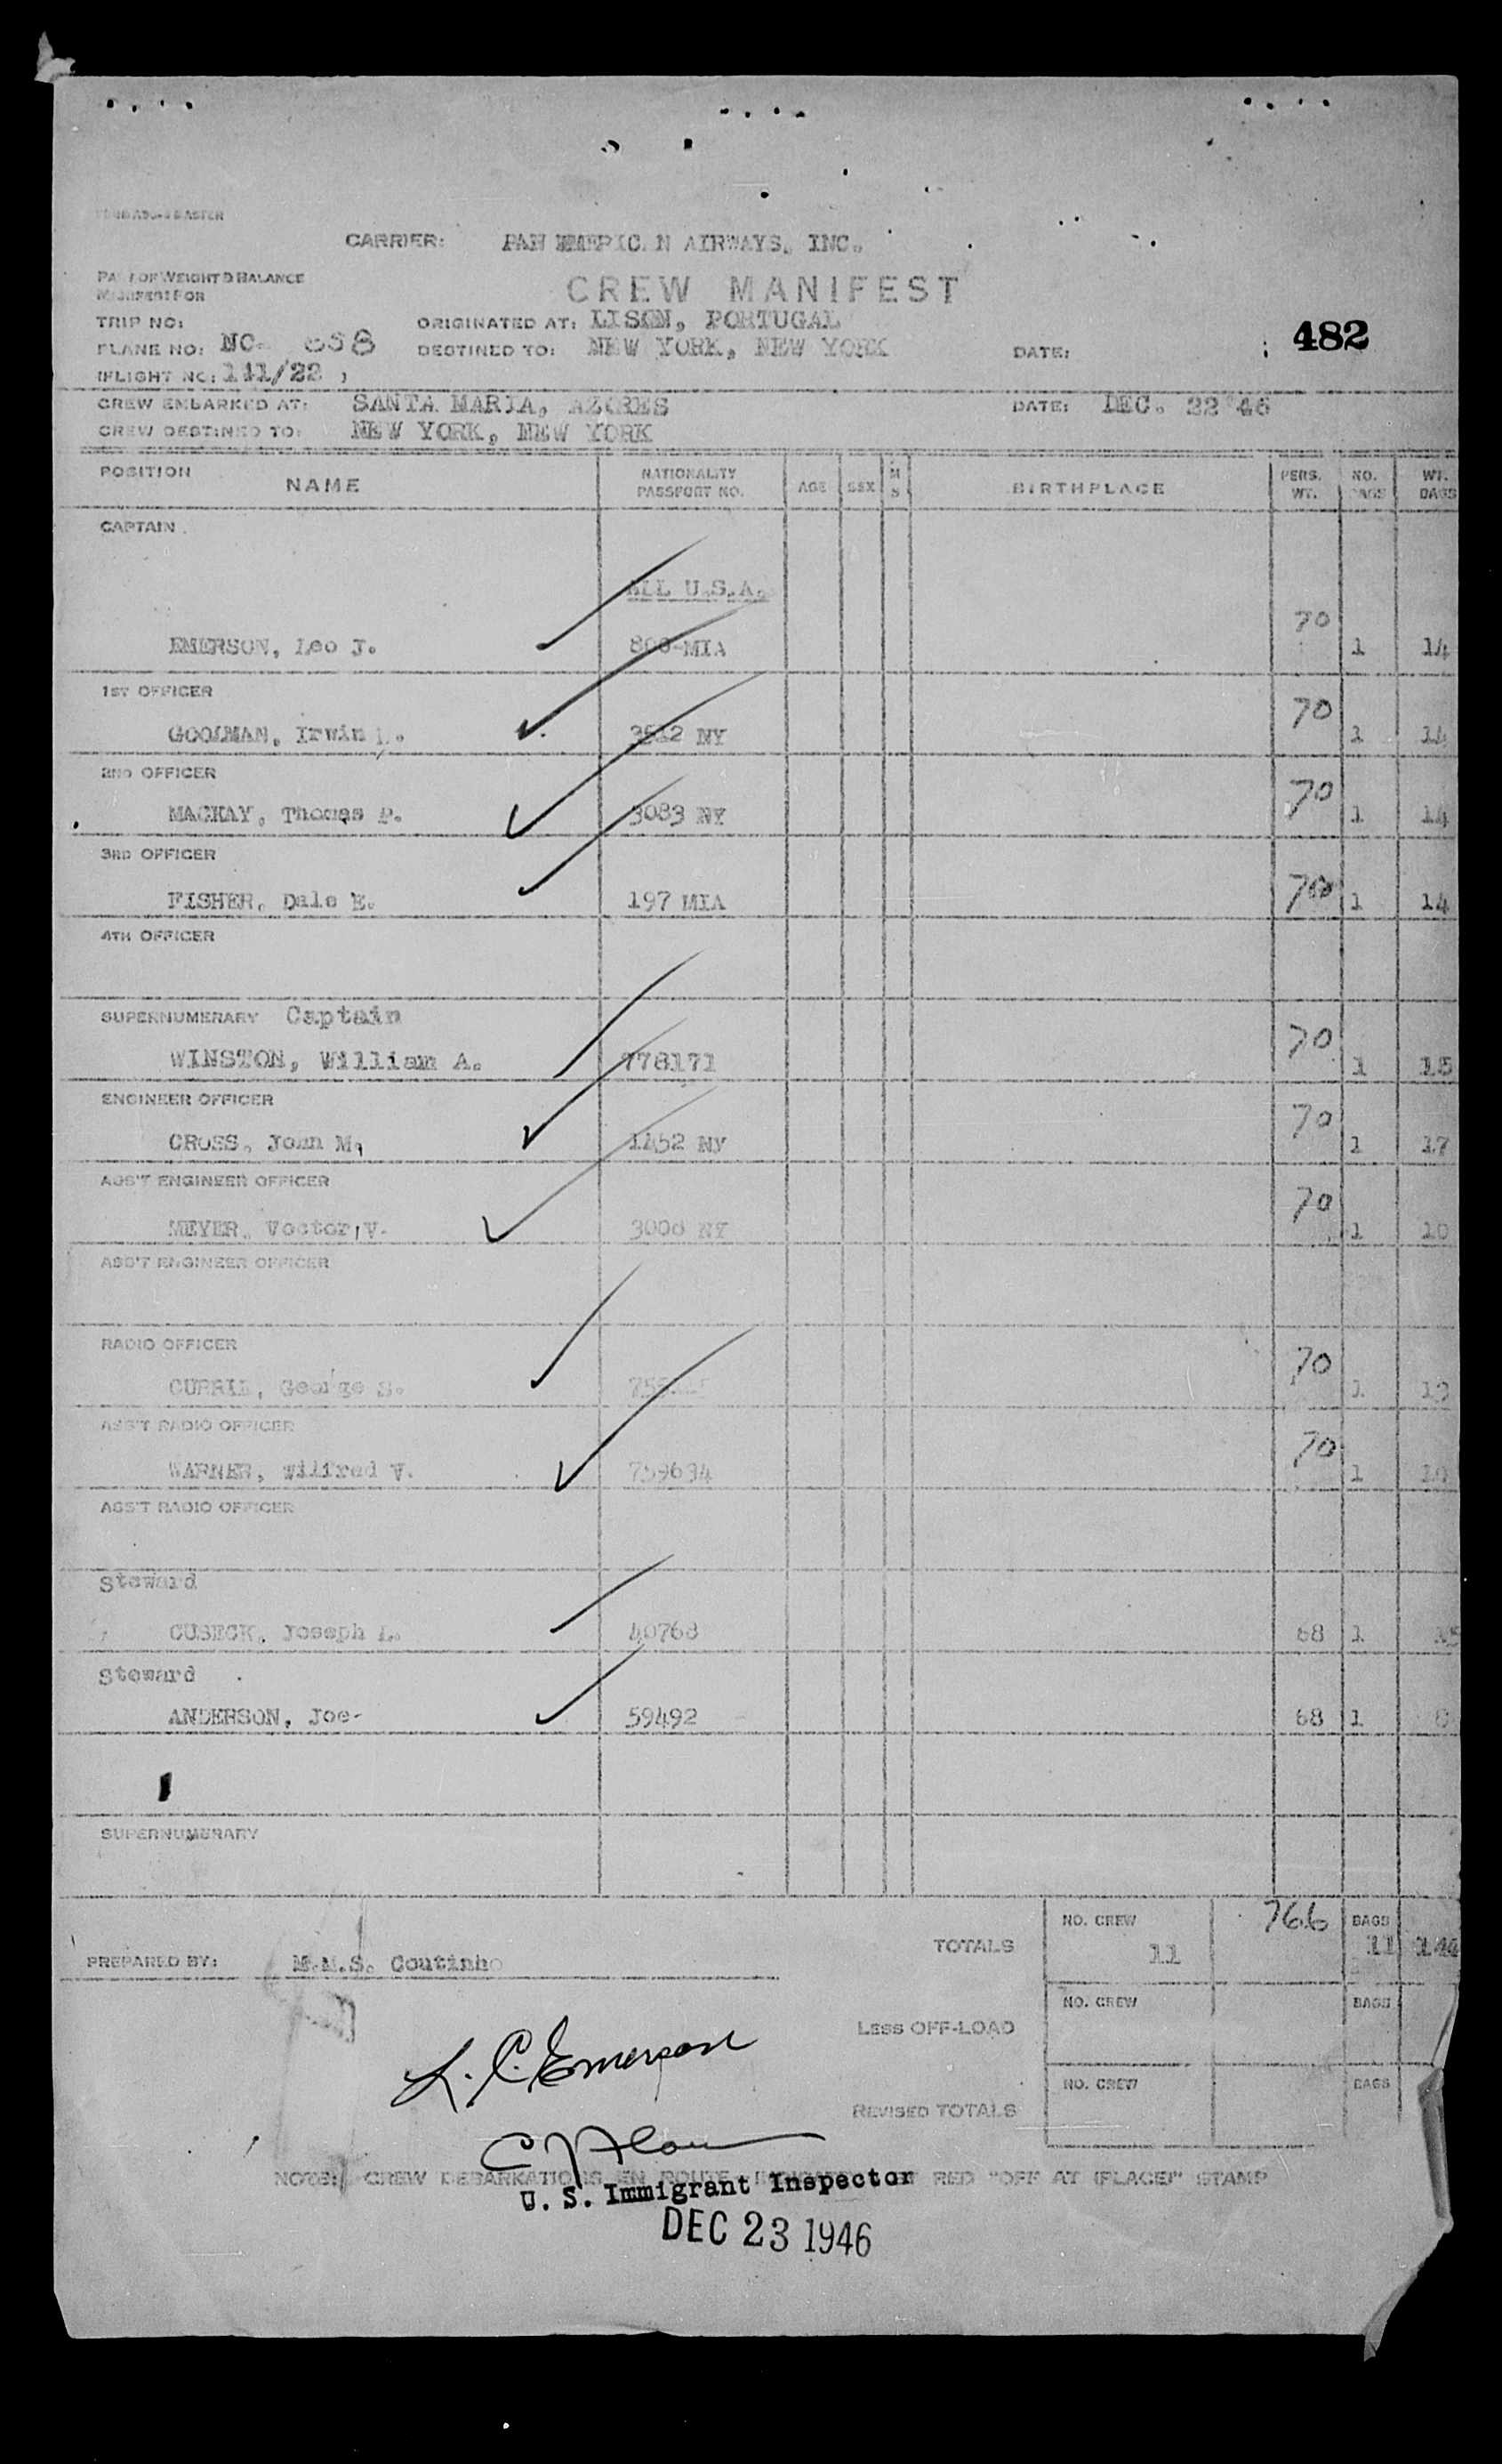 CARRIER: PAN AMERICAN AIRWAYS, INC.
PART OF WEIGHT & BALANCE
MANIFEST FOR
CREW MANIFEST
TRIP NO:
ORIGINATED AT: LISON, PORTUGAL
482
PLANE NO: NC-
DESTINED TO: NEW YORK, NEW YORK
DATE:
(FLIGHT NO: 141/22 )
CREW EMBARKED AT: SANTA MARIA, AZORES DATE: DEC. 22 46
CREW DESTINED TO: NEW YORK, NEW YORK
POSITION NAME NATIONALITY PASSPORT NO. AGE SEX M S BIRTHPLACE PERS. WT. NO. BAGS WT. BAGS
CAPTAIN
ALL U.S.A.
EMERSON, Leo J. 800-MIA 70 1 14
1ST OFFICER
GOOLMAN, Irwin L. 3512 NY 70 1 14
2ND OFFICER
MACKAY, Thomas P. 3083 NY 70 1 14
3RD OFFICER
FISHER, Dale E. 197 MIA 70 1 14
4TH OFFICER
SUPERNUMERARY Captain
WINSTON, William A. 778171 70 1 15
ENGINEER OFFICER
CROSS, John M. 1452 NY 70 1 17
ASS'T ENGINEER OFFICER
MEYER, Voctor V. 3006 NY 70 1 10
ASS'T ENGINEER OFFICER
RADIO OFFICER
George S. 70 1
ASS'T RADIO OFFICER
WARNER, Wilfred V. 759634 70 1 10
ASS'T RADIO OFFICER
Steward
CUSECK, Joseph L. 40768 68 1 15
Steward
ANDERSON, Joe- 59492 68 1 8
SUPERNUMERARY
TOTALS NO. CREW 11 766 BAGS 11 144
PREPARED BY: M.M.S. Coutinho
LESS OFF-LOAD NO. CREW BAGS
L. C. Emerson
REVISED TOTALS NO. CREW BAGS
NOTE: CREW DEBARKATIONS EN ROUTE RED "OFF AT (PLACE)" STAMP
U. S. Immigrant Inspector
DEC 23 1946